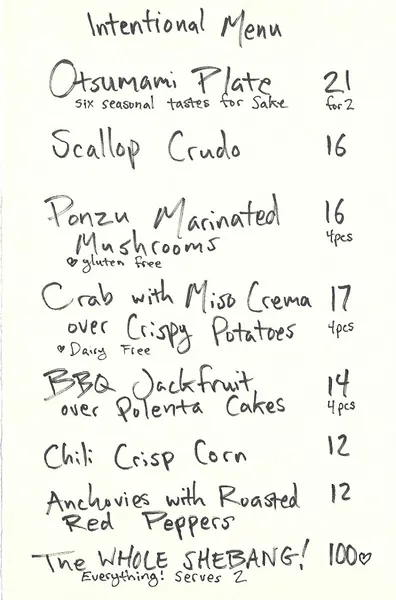 Intentional Menu
Otsumami Plate 21
six seasonal tastes for Sake for 2
Scallop Crudo 16
Ponzu Marinated 16
Mushrooms 4pcs
♥ gluten free
Crab with Miso Crema 17
over Crispy Potatoes 4pcs
♥ Dairy Free
BBQ Jackfruit 14
over Polenta Cakes 4pcs
Chili Crisp Corn 12
Anchovies with Roasted 12
Red Peppers
The WHOLE SHEBANG! 100♡
Everything! Serves 2